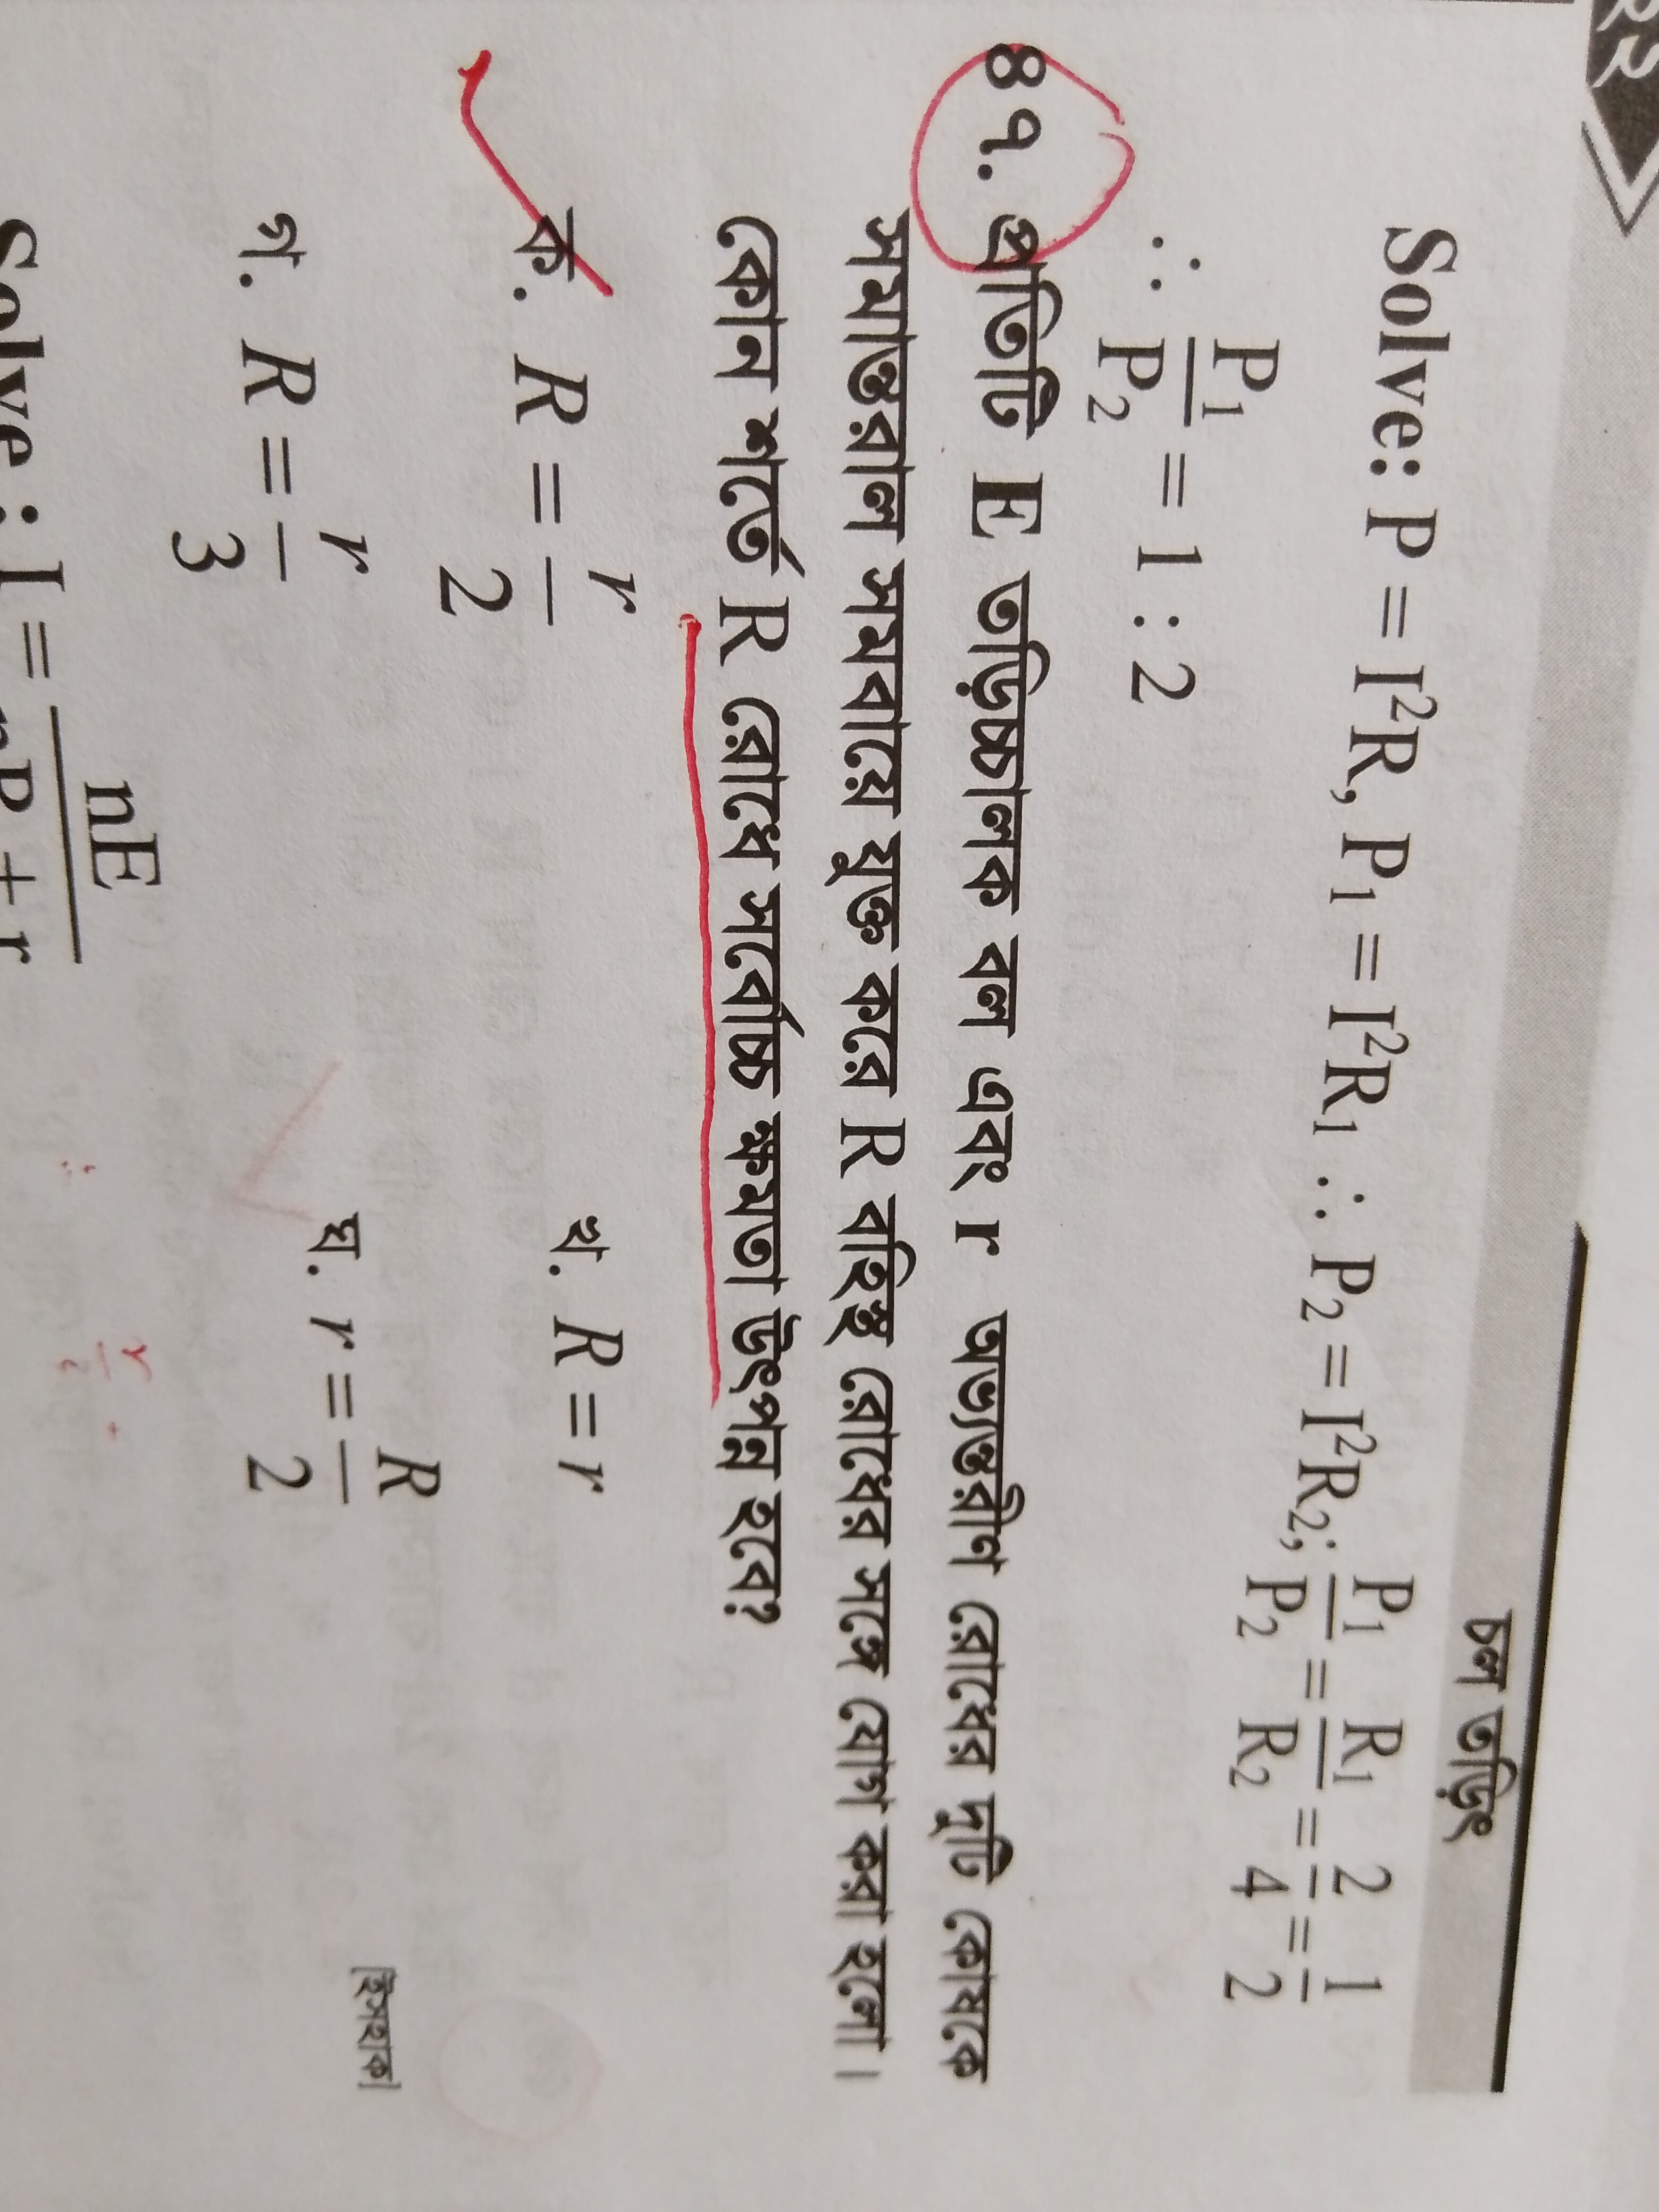 চল তড়িৎ
Solve: P = I²R, P₁ = I²R₁ ∴ P₂ = I²R₂; P₁/P₂ = R₁/R₂ = 2/4 = 1/2
∴ P₁/P₂ = 1 : 2
৪৭. প্রতিটি E তড়িচ্চালক বল এবং r অভ্যন্তরীণ রোধের দুটি কোষকে
সমান্তরাল সমবায়ে যুক্ত করে R বহিঃস্থ রোধের সঙ্গে যোগ করা হলো।
কোন শর্তে R রোধে সর্বোচ্চ ক্ষমতা উৎপন্ন হবে?
ক. R = r/2 খ. R = r
গ. R = r/3 ঘ. r = R/2 [ইসহাক]
Solve : I = nE/nR + r